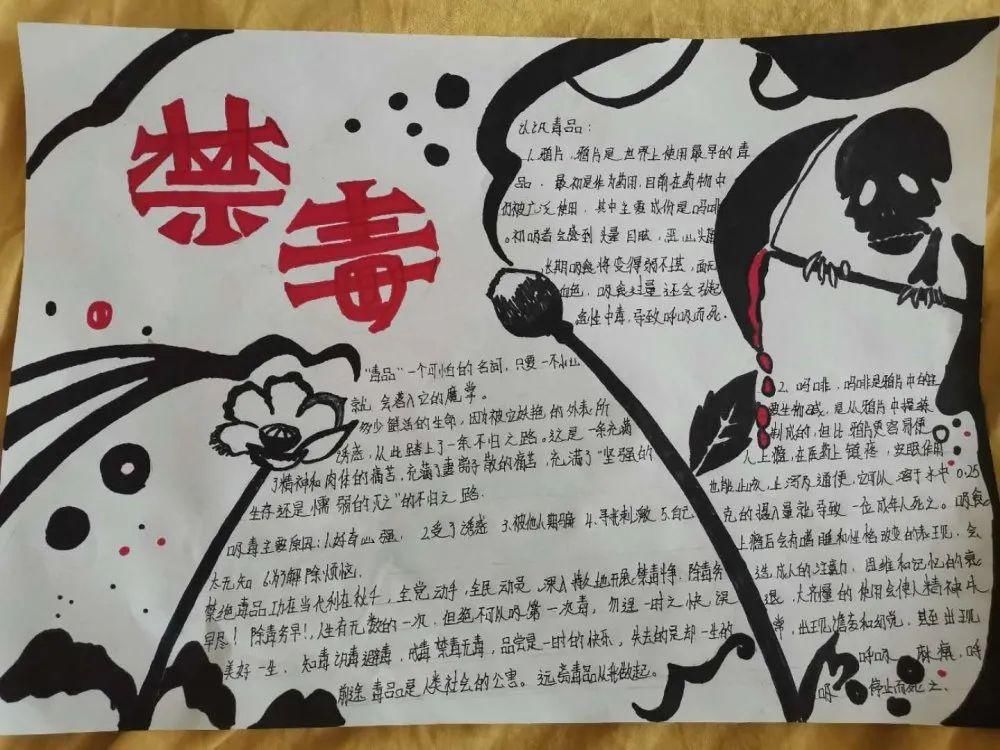 禁毒
认识毒品：
1、鸦片，鸦片是世界上使用最早的毒
品，最初是作为药用，目前在药物中
仍被广泛使用，其中主要成份是吗啡
。初吸者会感到头晕目眩，恶心头痛
长期吸食将变得弱不堪，面无
血色，吸食过量还会引起
急性中毒，导致呼吸而死。
"毒品"一个可怕的名词，只要一不小心
就会落入它的魔掌。
多少鲜活的生命，因为被它妖艳的外表所
诱惑，从此踏上了一条不归之路。这是一条充满
了精神和肉体的痛苦，充满了妻离子散的痛苦，充满了"坚强的
生存还是懦弱的灭亡"的不归之路.
吸毒主要原因：1.好奇心强， 2.受了诱惑 3.被他人期骗 4.寻求刺激 5.自己
太无知 6.为了解除烦恼.
禁绝毒品功在当代利在千秋，全党动手，全民动员，深入持久地开展禁毒斗争. 除毒务
早尽！除毒务早！，人生有无数的一次，但绝不可以吸第一次毒，勿逞一时之快，误
美好一生、知毒识毒避毒，戒毒禁毒无毒，品尝是一时的快乐，失去的是却一生的
前途 毒品是人类社会的公害。远离毒品从我做起。
2、吗啡，吗啡是鸦片中的主
要生物碱，是从鸦片中提炼
制成的，但比鸦片更容易使
人上瘾，在医药上镇疼，安眠作用
0.25
克的摄入量就导致一位成年人死亡。吸食
上瘾后会有嗜睡和性格改变的表现，会
造成人的注意力、思维和记忆的衰
退，大齐量的使用会使人精神失
常，出现谵妄和幻觉，甚至出现
呼吸 麻痹，呼
吸 停止而死亡、